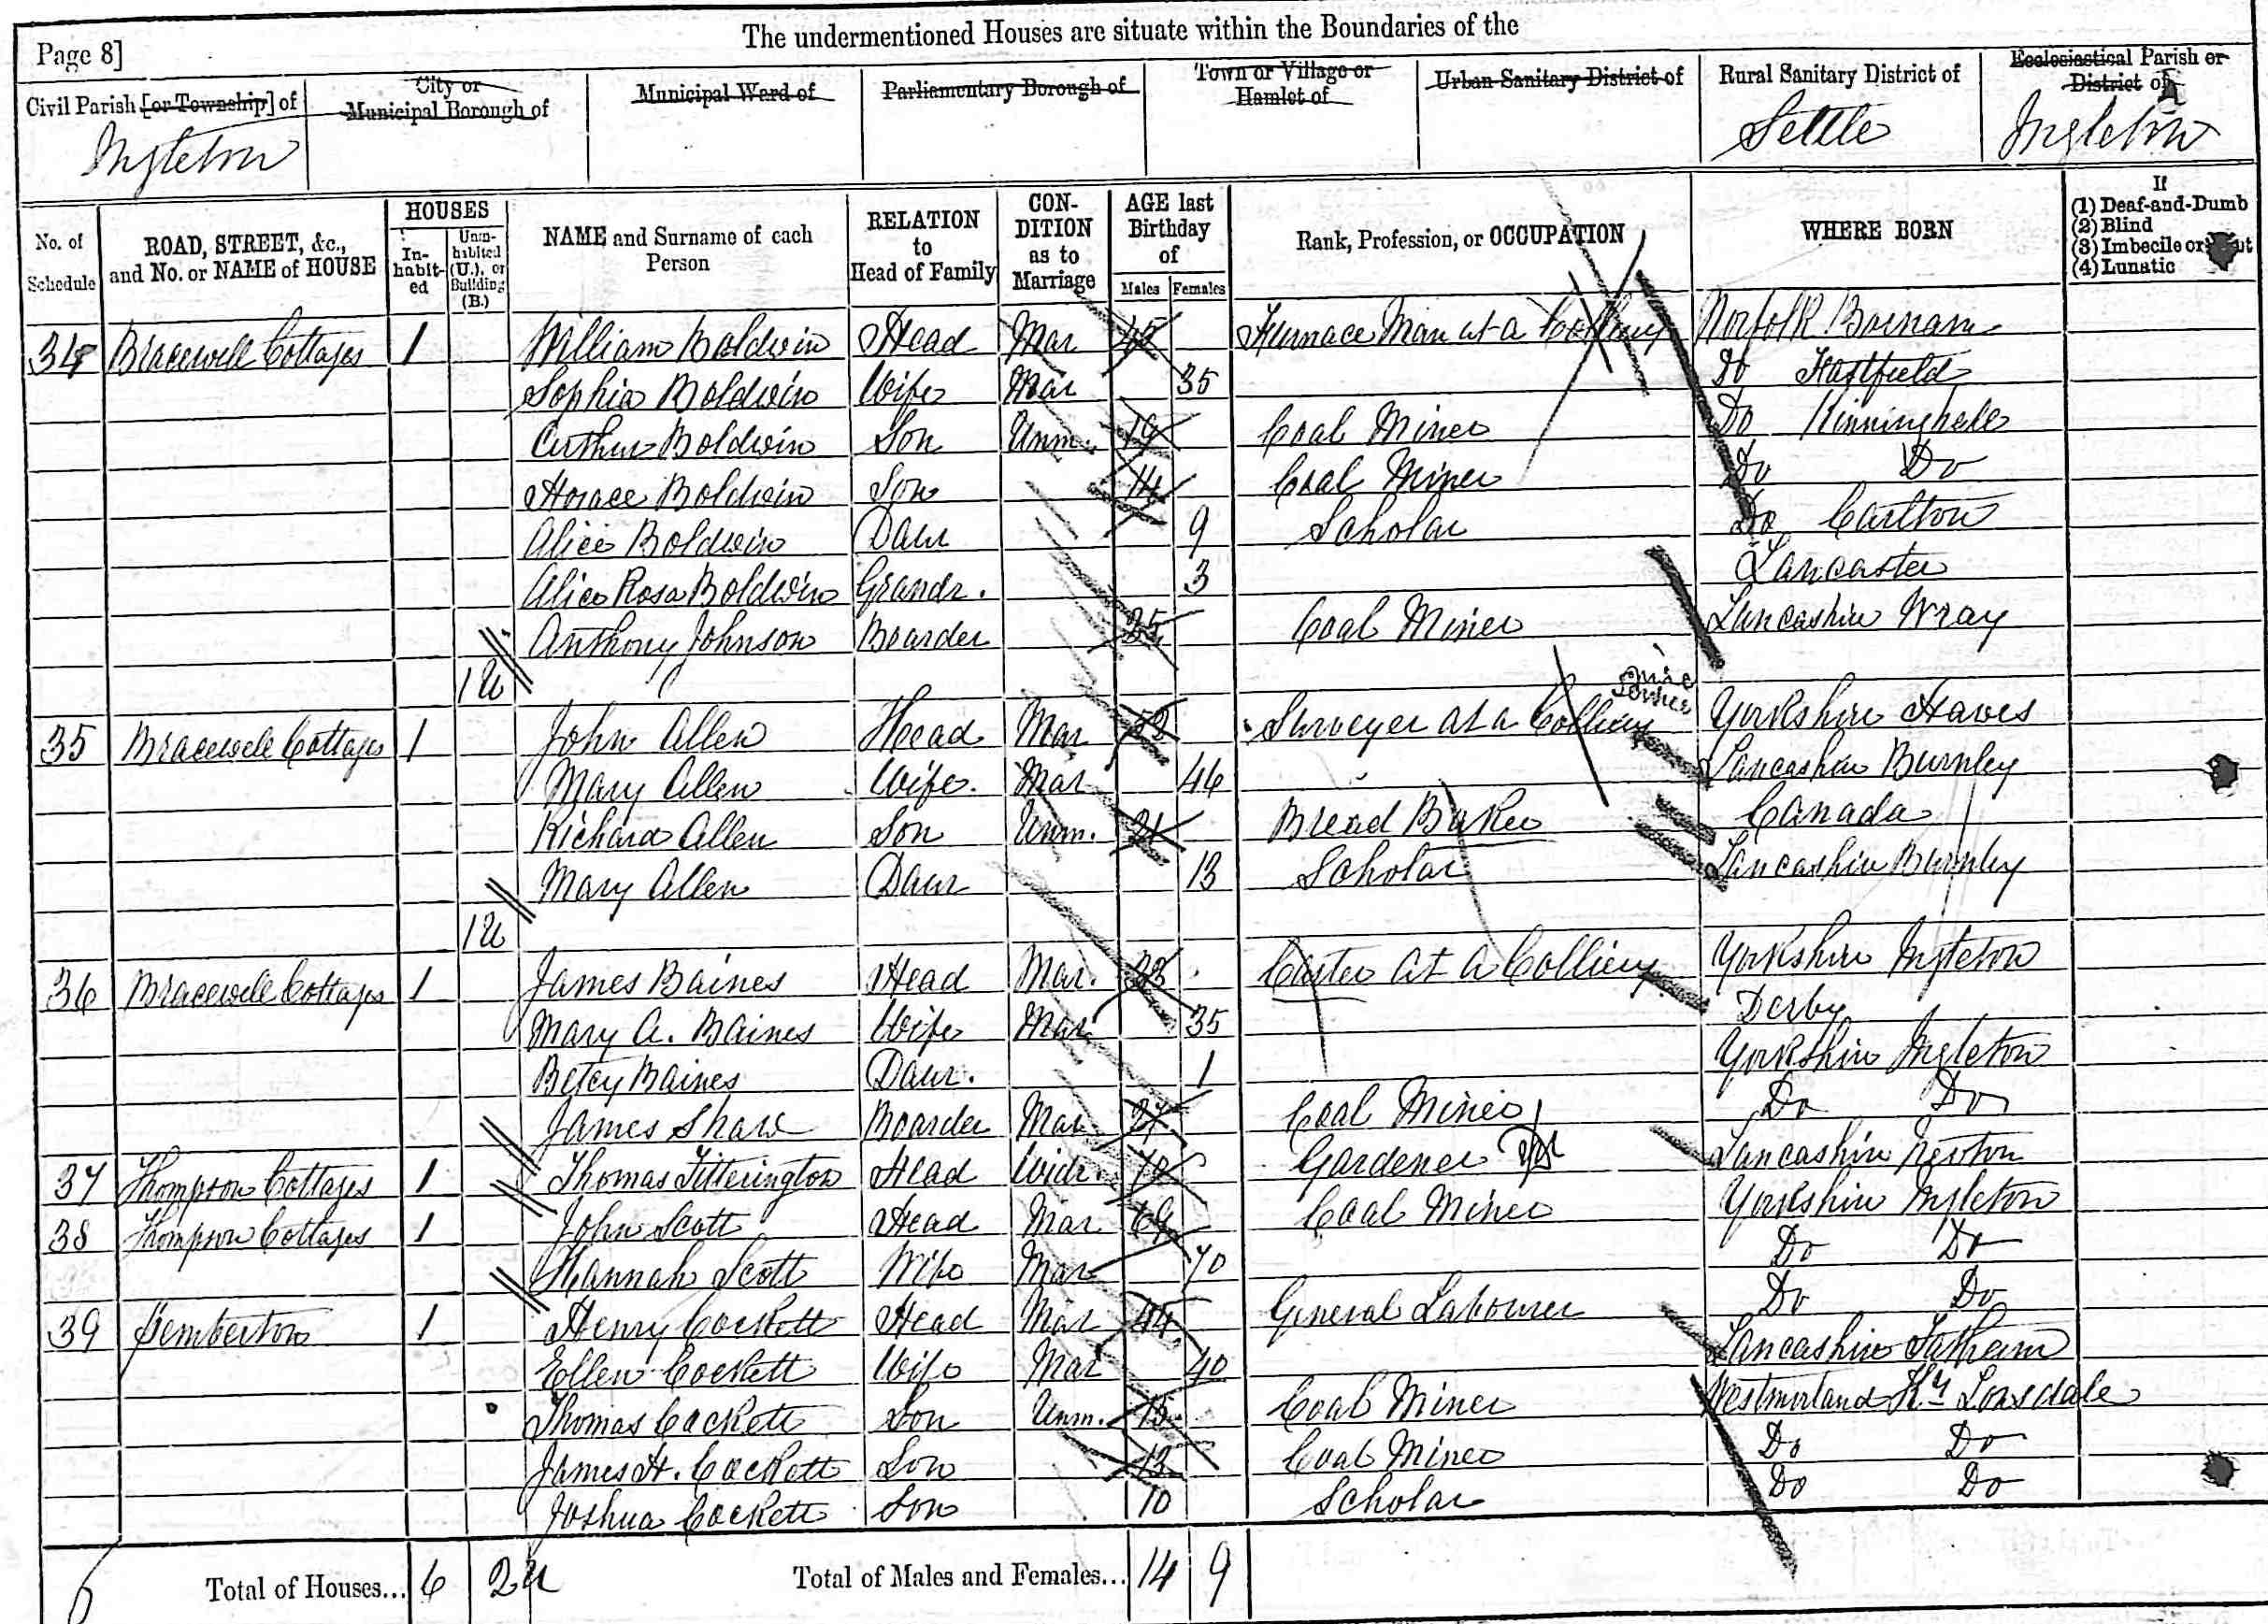 The undermentioned Houses are situate within the Boundaries of the
Page 8]
Civil Parish [or Township] of
City or Municipal Borough of
Municipal Ward of
Parliamentary Borough of
Town or Village or Hamlet of
Urban Sanitary District of
Rural Sanitary District of
Ecclesiastical Parish or District of
Ingleton
Settle
Ingleton
No. of Schedule
ROAD, STREET, &c., and No. or NAME of HOUSE
HOUSES
In-habit-ed
Unin-habited (U.), or Building (B.)
NAME and Surname of each Person
RELATION to Head of Family
CON-DITION as to Marriage
AGE last Birthday of
Males
Females
Rank, Profession, or OCCUPATION
WHERE BORN
If
(1) Deaf-and-Dumb
(2) Blind
(3) Imbecile or
(4) Lunatic
34 Bracewell Cottages 1 William Boldwin Head Mar 45 Furnace Man at a Colliery Norfolk
Sophia Boldwin Wife Mar 35 Do
Arthur Boldwin Son Unm. 19 Coal Miner Do Kinninghall
Horace Boldwin Son 14 Coal Miner Do Do
Alice Boldwin Daur 9 Scholar Do Carlton
Alice Rosa Boldwin Grandr. 3 Lancaster
Anthony Johnson Boarder 25 Coal Miner Lancashire Wray
1 U
35 Bracewell Cottages 1 John Allen Head Mar Surveyer at a Colliery Yorkshire Hawes
Mary Allen Wife Mar 46 Lancashire Burnley
Richard Allen Son Unm. 21 Bread Baker Canada
Mary Allen Daur 13 Scholar Lancashire Burnley
1 U
36 Bracewell Cottages 1 James Baines Head Mar. at a Colliery Yorkshire Ingleton
Mary A. Baines Wife Mar 35 Derby
Betcy Baines Daur. 1 Yorkshire Ingleton
James Shaw Boarder Mar 27 Coal Miner Do Do
37 Thompson Cottages 1 Thomas Titterington Head Widr. Gardener Lancashire Newton
38 Thompson Cottages 1 John Scott Head Mar 69 Coal Miner Yorkshire Ingleton
Hannah Scott Wife Mar 70 Do Do
39 Pemberton 1 Henry Cockett Head Mar 44 General Labourer Do Do
Ellen Cockett Wife Mar 40 Lancashire Tatham
Thomas Cockett Son Unm. 15 Coal Miner Westmorland Ky Lonsdale
James H. Cockett Son 13 Coal Miner Do Do
Joshua Cockett Son 10 Scholar Do Do
Total of Houses... 6 2 U Total of Males and Females... 14 9